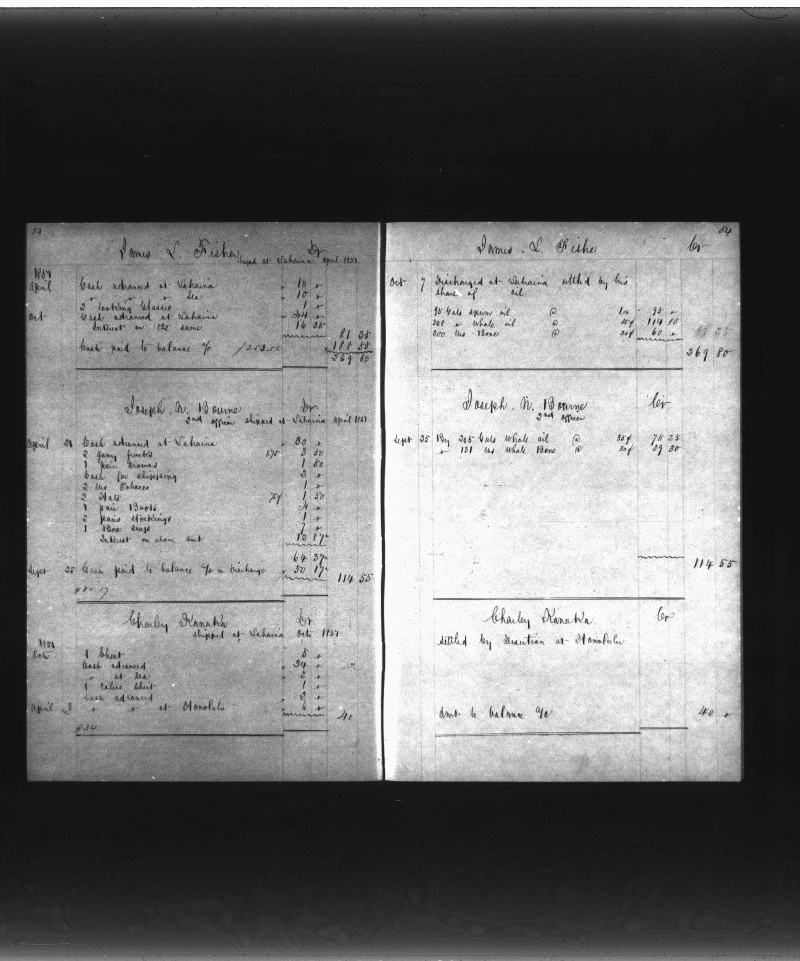 James L. Fisher Dr
shiped at Lahaina April 1857
April Cash advanced at Lahaina 10
" " " Sea 10
2 looking Glasses 1
Oct Cash advanced at Lahaina 44
Interest on the same 16 35
81 35
Cash paid to balance a/c 188 55
269 80
Joseph N. Bourne Dr
2nd officer shipped at Lahaina April 1857
April Cash advanced at Lahaina 30
2 175 3 50
1 pair 1 50
Cash for 2
2 lbs Tobacco 1
2 Hats 75¢ 1 50
1 pair Boots 4
2 pairs stockings 1
1
Interest on above amt 12 87
64 37
Sept 25 Cash paid to balance a/c in Discharge 50 17
114 55
Charley Kanaka Dr
shipped at Lahaina Oct 1857
Octo 1 5
Cash advanced 24
" at Sea 2
1 Calico Shirt 1
Cash advanced 2
April 3 " " at Honolulu 6
40
$34
54
James L. Fishe Cr
Oct 7 Discharged at Lahaina settled by his
share of oil
95 Gals sperm oil @ 95
" Whale oil @ 114 80
200 lbs Bone @ 30¢ 60
269 80
Joseph N. Bourne Cr
2nd officer
Sept 25 By 215 Gals Whale oil @ 35¢ 75 25
" 131 lbs Whale Bone @ 30¢ 39 30
114 55
Charley Kanaka Cr
settled by Desertion at Honolulu
Amt to balance a/c 40